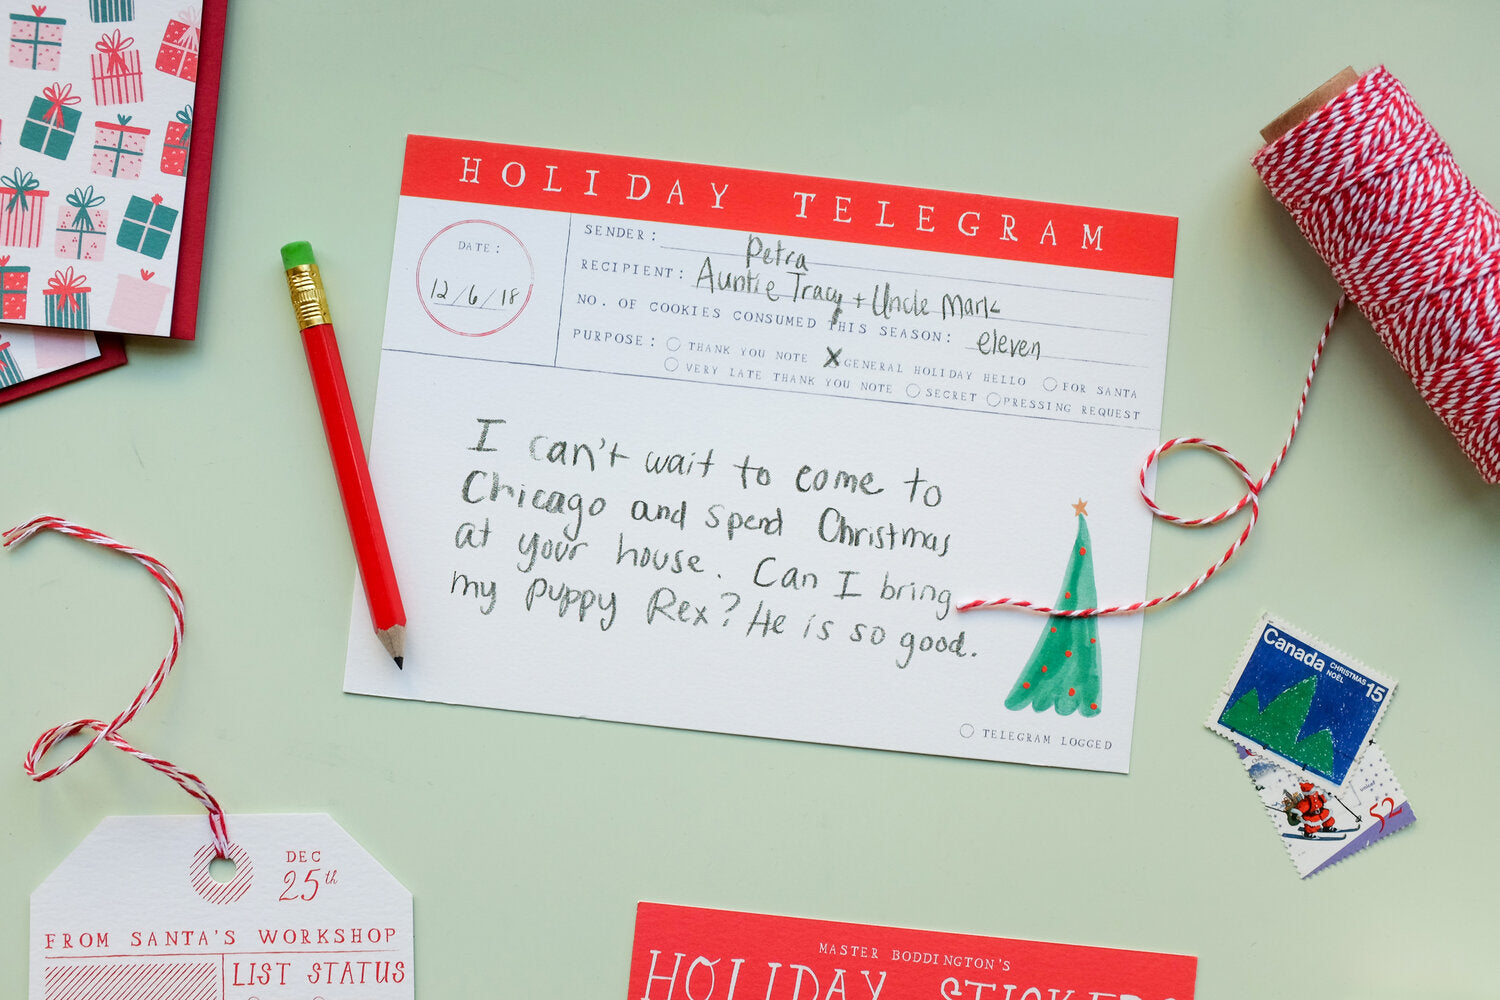 HOLIDAY TELEGRAM
DATE:
12/6/18
SENDER: Petra
RECIPIENT: Auntie Tracy + Uncle Mark
NO. OF COOKIES CONSUMED THIS SEASON: eleven
PURPOSE: THANK YOU NOTE X GENERAL HOLIDAY HELLO FOR SANTA
VERY LATE THANK YOU NOTE SECRET PRESSING REQUEST
I can't wait to come to
Chicago and spend Christmas
at your house. Can I bring
my puppy Rex? He is so good.
TELEGRAM LOGGED
Canada CHRISTMAS
NOËL 15
52
DEC
25th
FROM SANTA'S WORKSHOP
LIST STATUS
MASTER BODDINGTON'S
HOLIDAY STICKERS